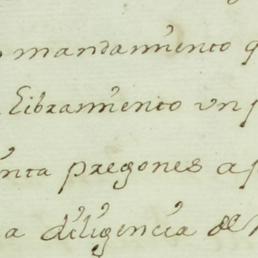 mandamiento q
libramiento un p
inta pregones a p
a diligencia de